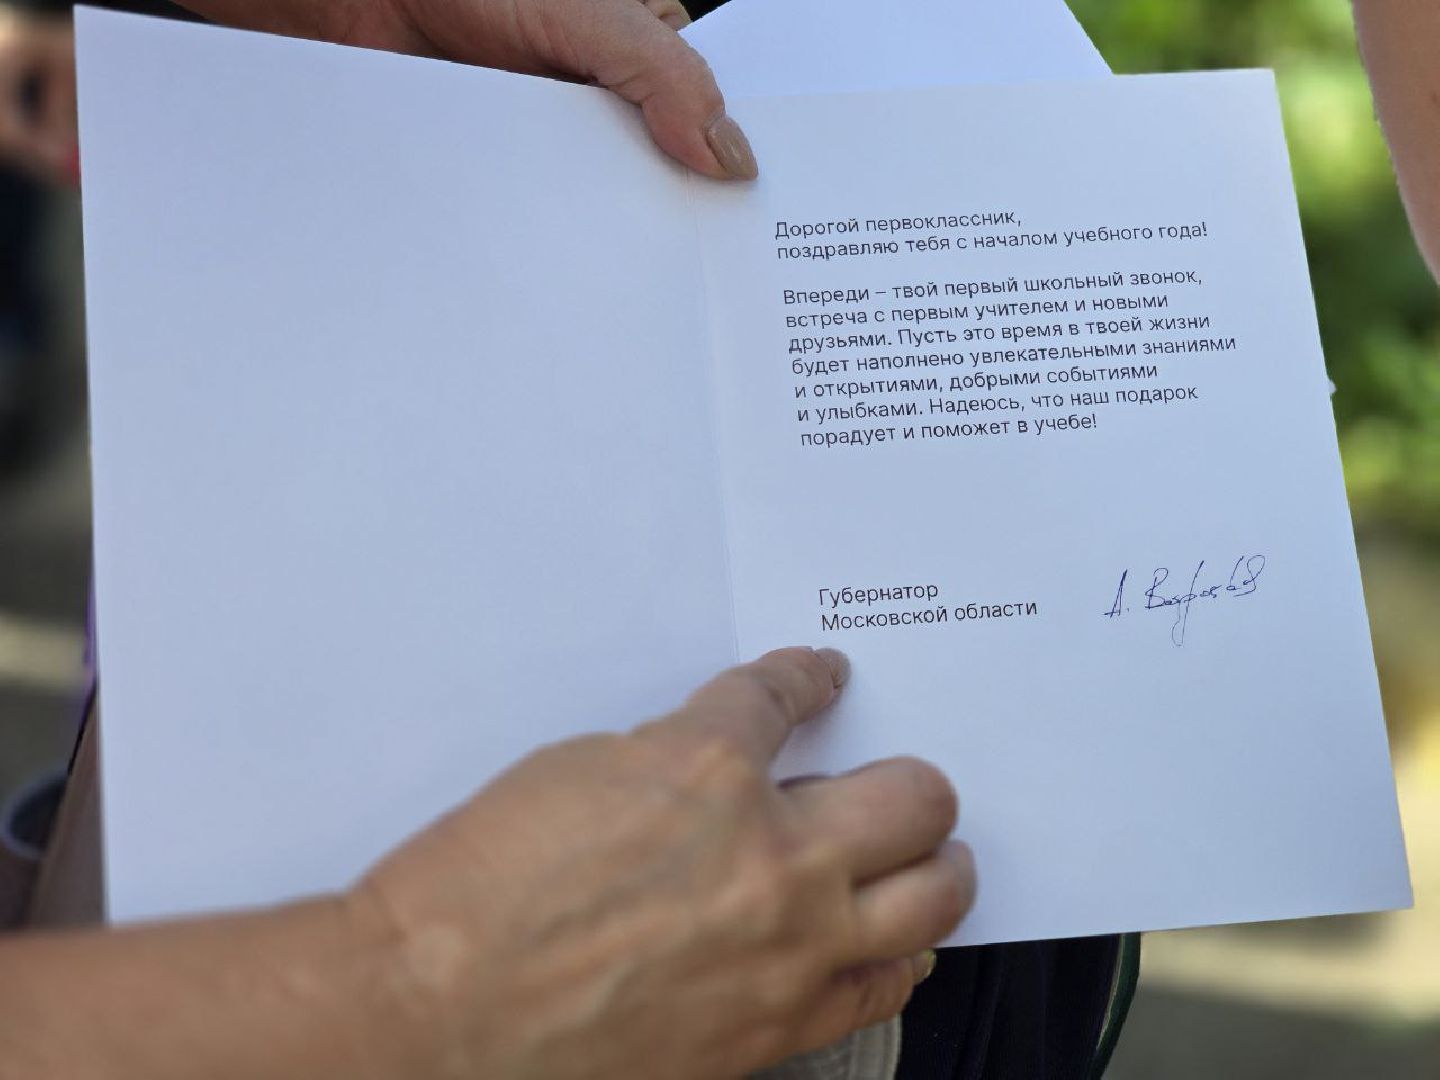 Дорогой первоклассник,
поздравляю тебя с началом учебного года!
Впереди – твой первый школьный звонок,
встреча с первым учителем и новыми
друзьями. Пусть это время в твоей жизни
будет наполнено увлекательными знаниями
и открытиями, добрыми событиями
и улыбками. Надеюсь, что наш подарок
порадует и поможет в учебе!
Губернатор
Московской области
А. Воробьёв